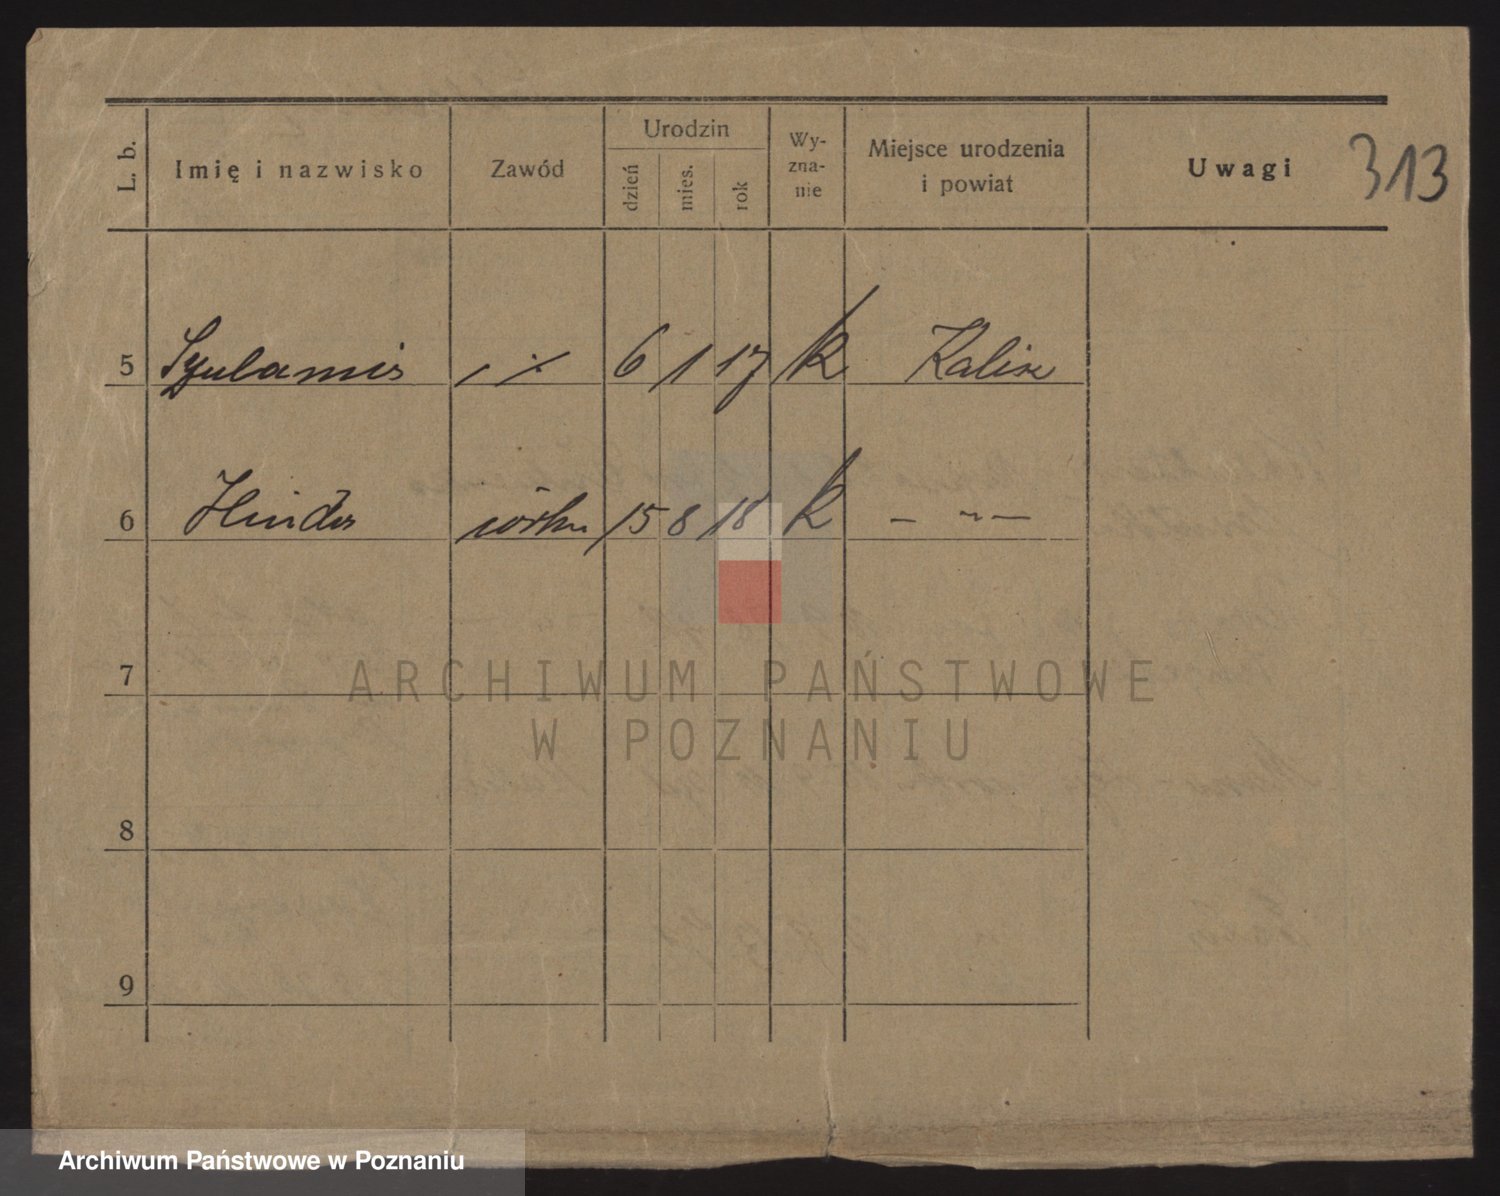 313
L. b. Imię i nazwisko Zawód Urodzin dzień mies. rok Wy-zna-nie Miejsce urodzenia i powiat Uwagi
5 Szulamis 6 1 17 k Kalisz
6 Hinda córka 15 8 18 k — „ —
7
8
9
ARCHIWUM PAŃSTWOWE
W POZNANIU
Archiwum Państwowe w Poznaniu